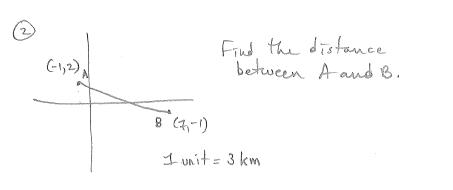 2
Find the distance
between A and B.
(-1,2) A
B (7,-1)
1 unit = 3 km